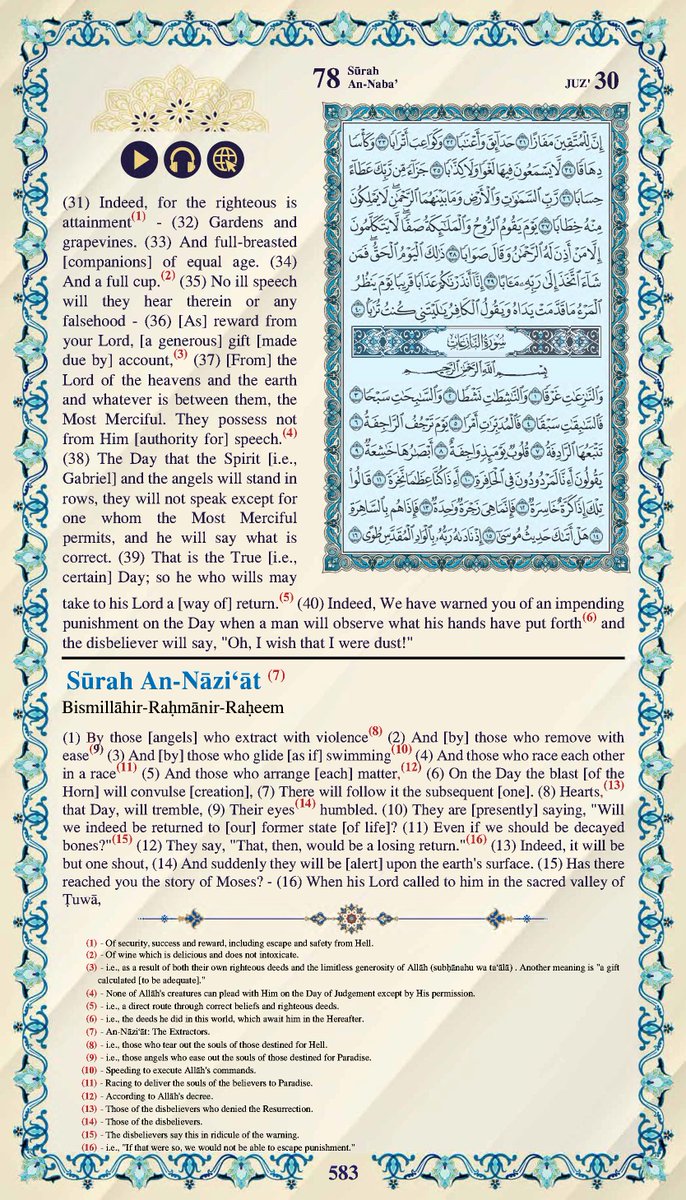 78 Sūrah An-Naba'
JUZ' 30
إِنَّ لِلْمُتَّقِينَ مَفَازًا ٣١ حَدَآئِقَ وَأَعْنَٰبًا ٣٢ وَكَوَاعِبَ أَتْرَابًا ٣٣ وَكَأْسًا
دِهَاقًا ٣٤ لَّا يَسْمَعُونَ فِيهَا لَغْوًا وَلَا كِذَّٰبًا ٣٥ جَزَآءً مِّن رَّبِّكَ عَطَآءً
حِسَابًا ٣٦ رَّبِّ ٱلسَّمَٰوَٰتِ وَٱلْأَرْضِ وَمَا بَيْنَهُمَا ٱلرَّحْمَٰنِ لَا يَمْلِكُونَ
مِنْهُ خِطَابًا ٣٧ يَوْمَ يَقُومُ ٱلرُّوحُ وَٱلْمَلَٰٓئِكَةُ صَفًّا لَّا يَتَكَلَّمُونَ
إِلَّا مَنْ أَذِنَ لَهُ ٱلرَّحْمَٰنُ وَقَالَ صَوَابًا ٣٨ ذَٰلِكَ ٱلْيَوْمُ ٱلْحَقُّ فَمَن
شَآءَ ٱتَّخَذَ إِلَىٰ رَبِّهِۦ مَـَٔابًا ٣٩ إِنَّآ أَنذَرْنَٰكُمْ عَذَابًا قَرِيبًا يَوْمَ يَنظُرُ
ٱلْمَرْءُ مَا قَدَّمَتْ يَدَاهُ وَيَقُولُ ٱلْكَافِرُ يَٰلَيْتَنِى كُنتُ تُرَٰبًۢا ٤٠
سُورَةُ النَّازِعَاتِ
بِسْمِ ٱللَّهِ ٱلرَّحْمَٰنِ ٱلرَّحِيمِ
وَٱلنَّٰزِعَٰتِ غَرْقًا ١ وَٱلنَّٰشِطَٰتِ نَشْطًا ٢ وَٱلسَّٰبِحَٰتِ سَبْحًا ٣
فَٱلسَّٰبِقَٰتِ سَبْقًا ٤ فَٱلْمُدَبِّرَٰتِ أَمْرًا ٥ يَوْمَ تَرْجُفُ ٱلرَّاجِفَةُ ٦
تَتْبَعُهَا ٱلرَّادِفَةُ ٧ قُلُوبٌ يَوْمَئِذٍ وَاجِفَةٌ ٨ أَبْصَٰرُهَا خَٰشِعَةٌ ٩
يَقُولُونَ أَءِنَّا لَمَرْدُودُونَ فِى ٱلْحَافِرَةِ ١٠ أَءِذَا كُنَّا عِظَٰمًا نَّخِرَةً ١١ قَالُوا۟
تِلْكَ إِذًا كَرَّةٌ خَاسِرَةٌ ١٢ فَإِنَّمَا هِىَ زَجْرَةٌ وَٰحِدَةٌ ١٣ فَإِذَا هُم بِٱلسَّاهِرَةِ
١٤ هَلْ أَتَىٰكَ حَدِيثُ مُوسَىٰٓ ١٥ إِذْ نَادَىٰهُ رَبُّهُۥ بِٱلْوَادِ ٱلْمُقَدَّسِ طُوًى ١٦
(31) Indeed, for the righteous is
attainment(1) - (32) Gardens and
grapevines. (33) And full-breasted
[companions] of equal age. (34)
And a full cup.(2) (35) No ill speech
will they hear therein or any
falsehood - (36) [As] reward from
your Lord, [a generous] gift [made
due by] account,(3) (37) [From] the
Lord of the heavens and the earth
and whatever is between them, the
Most Merciful. They possess not
from Him [authority for] speech.(4)
(38) The Day that the Spirit [i.e.,
Gabriel] and the angels will stand in
rows, they will not speak except for
one whom the Most Merciful
permits, and he will say what is
correct. (39) That is the True [i.e.,
certain] Day; so he who wills may
take to his Lord a [way of] return.(5) (40) Indeed, We have warned you of an impending
punishment on the Day when a man will observe what his hands have put forth(6) and
the disbeliever will say, "Oh, I wish that I were dust!"
Sūrah An-Nāzi‘āt (7)
Bismillāhir-Raḥmānir-Raḥeem
(1) By those [angels] who extract with violence(8) (2) And [by] those who remove with
ease(9) (3) And [by] those who glide [as if] swimming (10) (4) And those who race each other
in a race(11) (5) And those who arrange [each] matter,(12) (6) On the Day the blast [of the
Horn] will convulse [creation], (7) There will follow it the subsequent [one]. (8) Hearts,(13)
that Day, will tremble, (9) Their eyes(14) humbled. (10) They are [presently] saying, "Will
we indeed be returned to [our] former state [of life]? (11) Even if we should be decayed
bones?"(15) (12) They say, "That, then, would be a losing return."(16) (13) Indeed, it will be
but one shout, (14) And suddenly they will be [alert] upon the earth's surface. (15) Has there
reached you the story of Moses? - (16) When his Lord called to him in the sacred valley of
Ṭuwā,
(1) - Of security, success and reward, including escape and safety from Hell.
(2) - Of wine which is delicious and does not intoxicate.
(3) - i.e., as a result of both their own righteous deeds and the limitless generosity of Allāh (subḥānahu wa ta'ālā) . Another meaning is "a gift
calculated [to be adequate]."
(4) - None of Allāh's creatures can plead with Him on the Day of Judgement except by His permission.
(5) - i.e., a direct route through correct beliefs and righteous deeds.
(6) - i.e., the deeds he did in this world, which await him in the Hereafter.
(7) - An-Nāzi'āt: The Extractors.
(8) - i.e., those who tear out the souls of those destined for Hell.
(9) - i.e., those angels who ease out the souls of those destined for Paradise.
(10) - Speeding to execute Allāh's commands.
(11) - Racing to deliver the souls of the believers to Paradise.
(12) - According to Allāh's decree.
(13) - Those of the disbelievers who denied the Resurrection.
(14) - Those of the disbelievers.
(15) - The disbelievers say this in ridicule of the warning.
(16) - i.e., "If that were so, we would not be able to escape punishment."
583